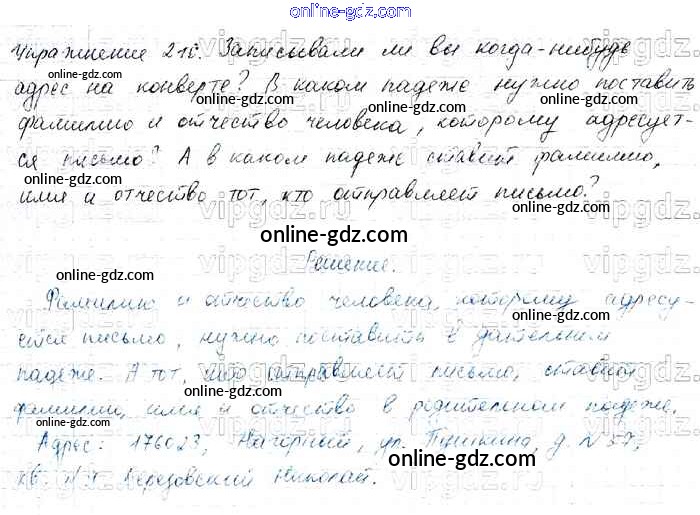 online-gdz.com
Упражнение 210. Записывали ли вы когда-нибудь
online-gdz.com
адрес на конверте? В каком падеже нужно поставить
online-gdz.com online-gdz.com
фамилию и отчество человека, которому адресует-
ся письмо? А в каком падеже ставит фамилию,
online-gdz.com
имя и отчество тот, кто отправляет письмо?
online-gdz.com
vipgdz.ru
online-gdz.com
Решение.
online-gdz.com
Фамилию и отчество человека, которому адресу-
ется письмо, нужно поставить в дательном
online-gdz.com
падеже. А тот, кто отправляет письмо, ставит
online-gdz.com
фамилии, имя и отчество в родительном падеже.
Адрес: 176023, Нагорный, ул. Пушкина, д. N 37,
online-gdz.com
кв. Березовский Николай.